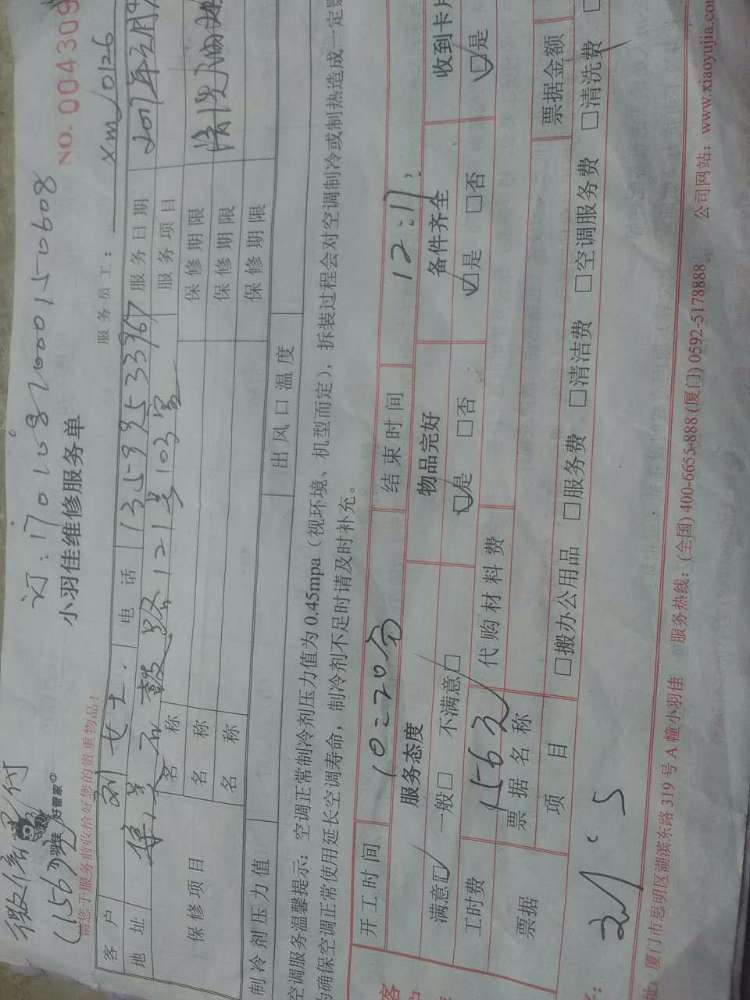 订:17010826000150608
微信已付
(156元)
小羽佳 好管家
小羽佳维修服务单
NO. 004309
请您于服务前收拾好您的贵重物品!
服务员工: xm_0126
客户 刘女士. 电话 13599533967 服务日期 2017年元月
地址 集美石鼓路121号103室 服务项目 清洗油烟
保修项目 名称 保修期限
名称 保修期限
名称 保修期限
制冷剂压力值 出风口温度
空调服务温馨提示:空调正常制冷剂压力值为0.45mpa(视环境、机型而定),拆装过程会对空调制冷或制热造成一定
为确保空调正常使用延长空调寿命,制冷剂不足时请及时补充。
开工时间 10:20分 结束时间 12:17
服务态度 物品完好 备件齐全 收到卡片
满意☑ 一般□ 不满意□ ☑是 □否 ☑是 □否 ☑是
工时费 156元 代购材料费
票据 票据名称 票据金额
项目 □搬办公用品 □服务费 □清洁费 □空调服务费 □清洗费
厦门市思明区湖滨东路319号A幢小羽佳 服务热线:(全国)400-6655-888 (厦门)0592-5178888 公司网站:www.xiaoyujia.com